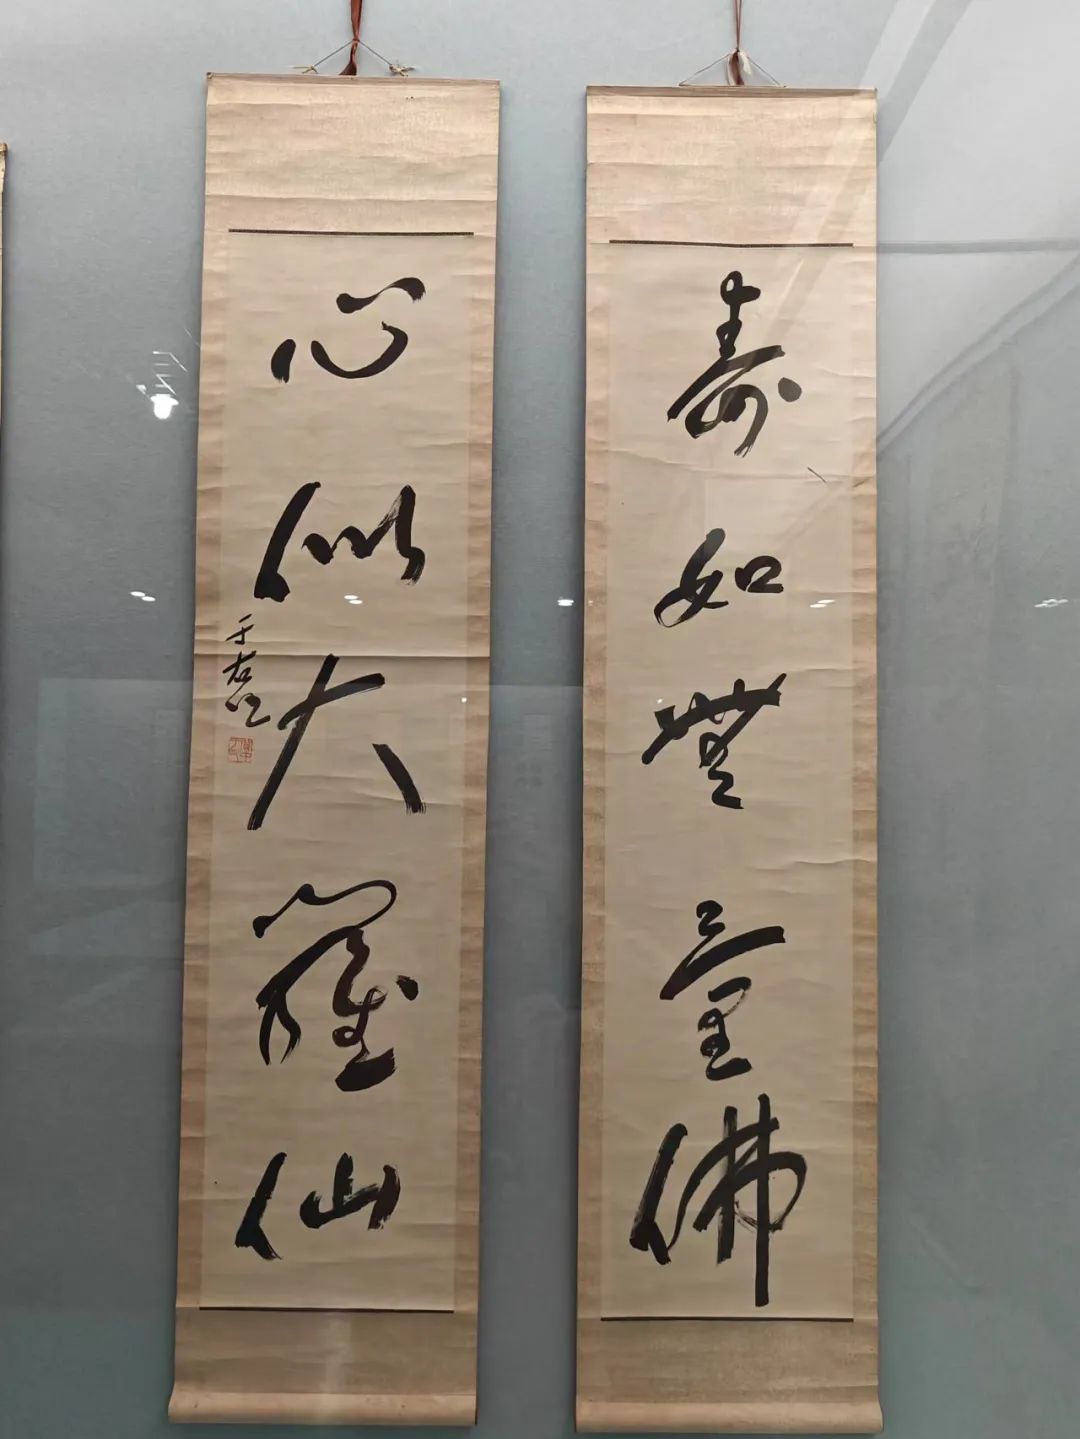 壽如無量佛
心似大羅仙
于右任